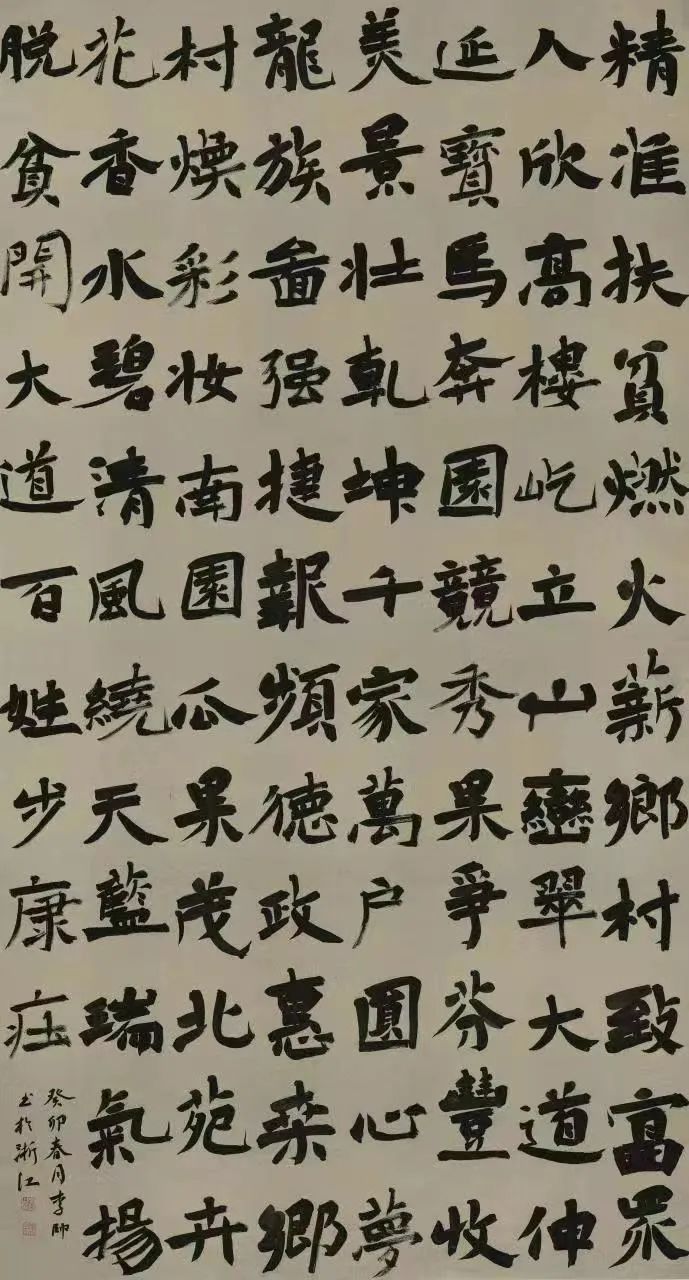 精准扶貧燃火薪鄉村致富眾
人欣高樓屹立山巒翠大道伸
延寶馬奔園競秀果爭芬豐收
美景壯乾坤千家萬户圓心夢
龍族啚强捷報頻德政惠桑鄉
村燠彩妝南園瓜果茂北苑卉
花香水碧清風繞天藍瑞氣揚
脱貧開大道百姓步康莊
癸卯春月李帥
书於浙江